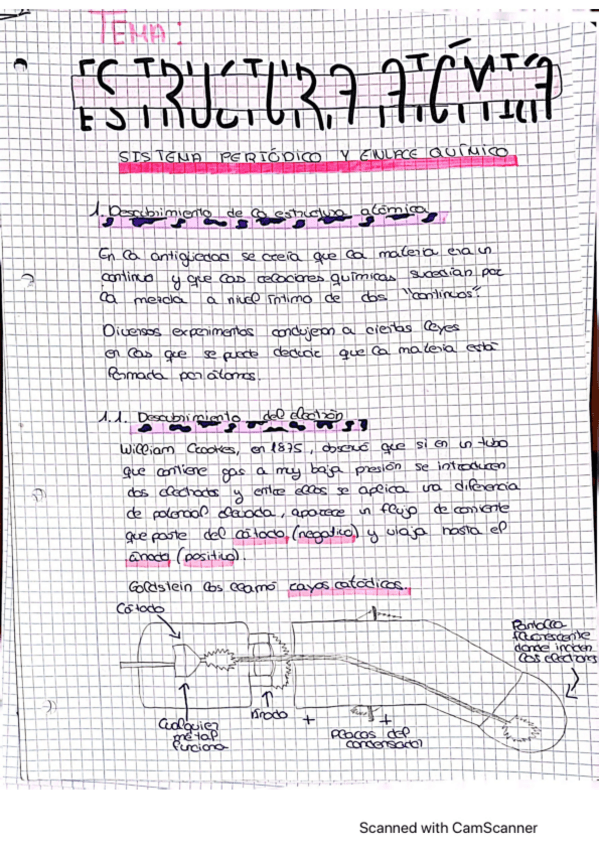 TEMA:
ESTRUCTURA ATÓMICA
SISTEMA PERIÓDICO Y ENLACE QUÍMICO
1. Descubrimiento de la estructura atómica
En la antigüedad se creía que la materia era un
continuo y que las reacciones químicas sucedían por
la mezcla a nivel íntimo de dos "continuos".
Diversos experimentos condujeron a ciertas leyes
en las que se puede deducir que la materia está
formada por átomos.
1.1. Descubrimiento del electrón
William Crookes, en 1875, observó que si en un tubo
que contiene gas a muy baja presión se introducen
dos electrodos y entre ellos se aplica una diferencia
de potencial elevada, aparece un flujo de corriente
que parte del cátodo (negativo) y viaja hasta el
ánodo (positivo).
Goldstein los llamó rayos catódicos.
Cátodo
Pantalla
fluorescente
donde inciden
los electrones
Cualquier
metal
funciona
Ánodo
+
+
Placas del
condensador
Scanned with CamScanner